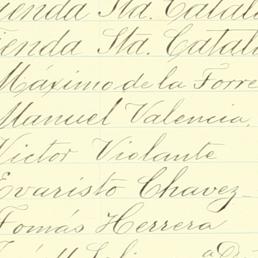 ienda Sta. Catal
ienda Sta. Catal
Máximo de la Torre
Manuel Valencia.
Victor Violante
Evaristo Chavez
Tomás Herrera